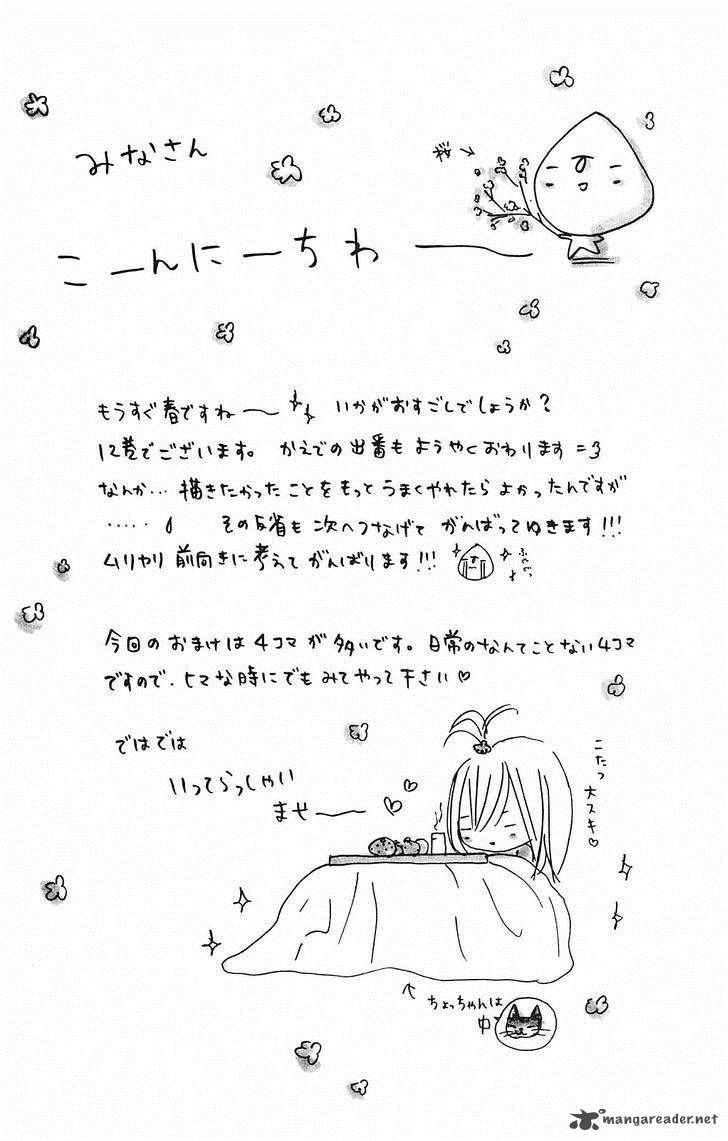 みなさん
こーんにーちわー
もうすぐ春ですね〜 いかがおすごしでしょうか?
12巻でございます。かえでの出番もようやくおわります=3
なんか… 描きたかったことをもっとうまくやれたらよかったんですが
..... その反省も次へつなげて がんばってゆきます!!!
ムリヤリ前向きに考えてがんばります!!!
今回のおまけは4コマが多いです。日常のなんてことない4コマ
ですので、ヒマな時にでもみてやって下さい♡
ではでは
いってらっしゃい
ませ——
こたつ大スキ♡
ちょっちゃんは
中
mangareader.net